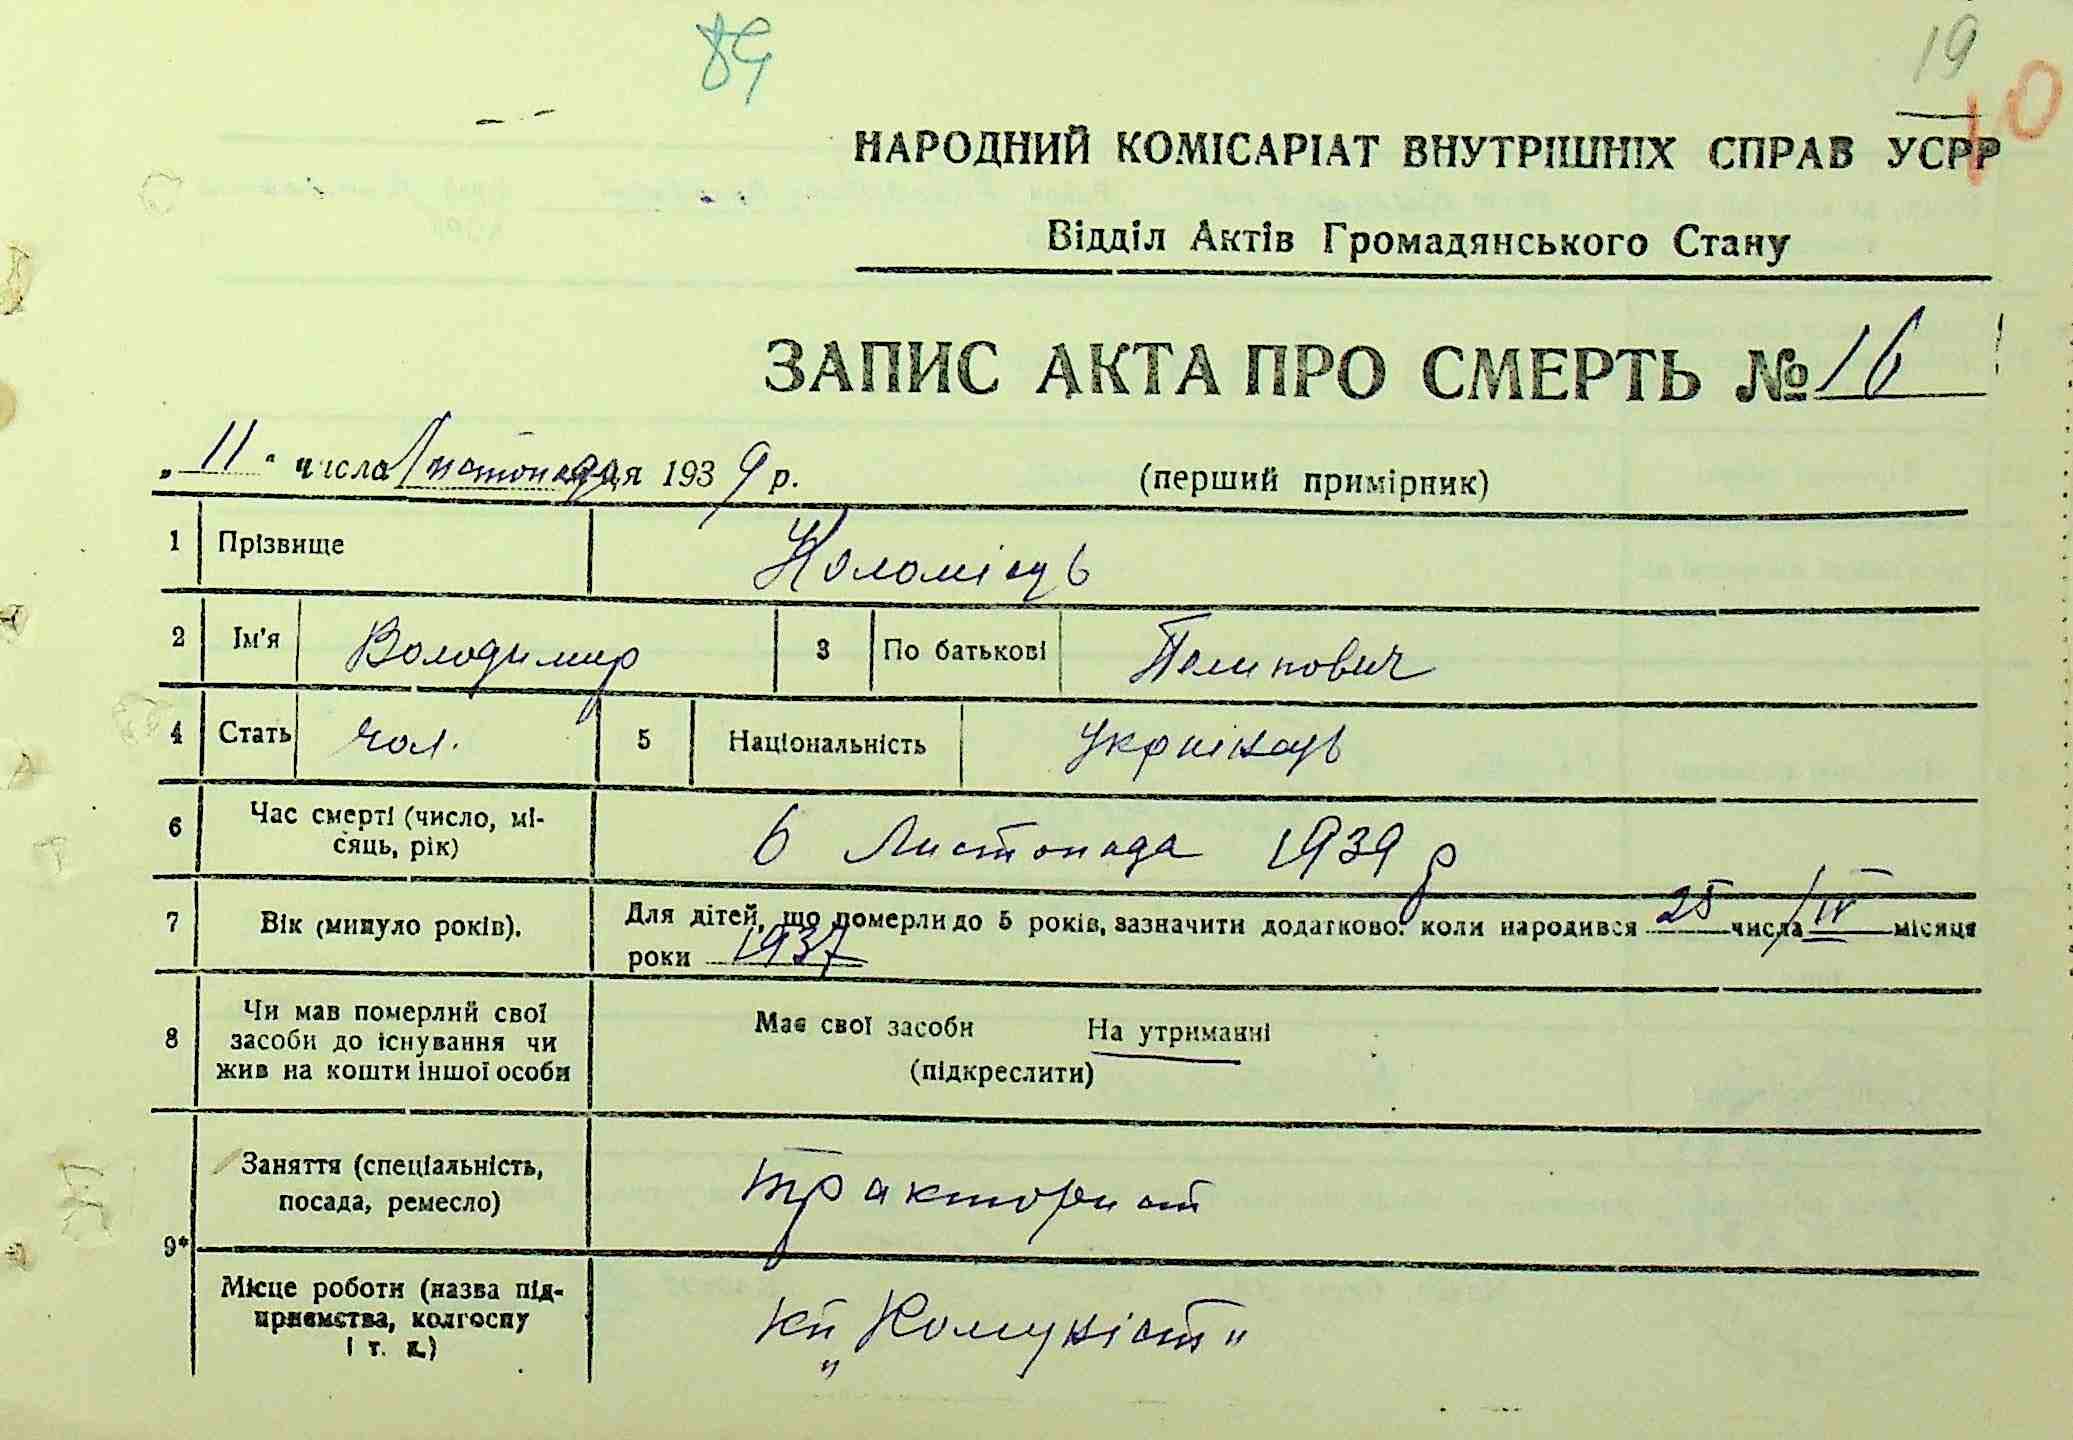 84
19
10
НАРОДНИЙ КОМІСАРІАТ ВНУТРІШНІХ СПРАВ УСРР
Відділ Актів Громадянського Стану
ЗАПИС АКТА ПРО СМЕРТЬ № 16
„ 11 " числа листопада ця 1939 р. (перший примірник)
1 Прізвище Коломієць
2 Ім'я Володимир 3 По батькові Пилипович
4 Стать чол. 5 Національність українець
6 Час смерті (число, мі-
сяць, рік) 6 Листопада 1939 р
7 Вік (минуло років). Для дітей, що померли до 5 років, зазначити додатково: коли народився 25 числа IV місяця
роки 1937
8 Чи мав померлий свої
засоби до існування чи
жив на кошти іншої особи
Має свої засоби На утриманні
(підкреслити)
9* Заняття (спеціальність,
посада, ремесло) тракторист
Місце роботи (назва під-
приємства, колгоспу
і т. п.) кп „Комуніст"